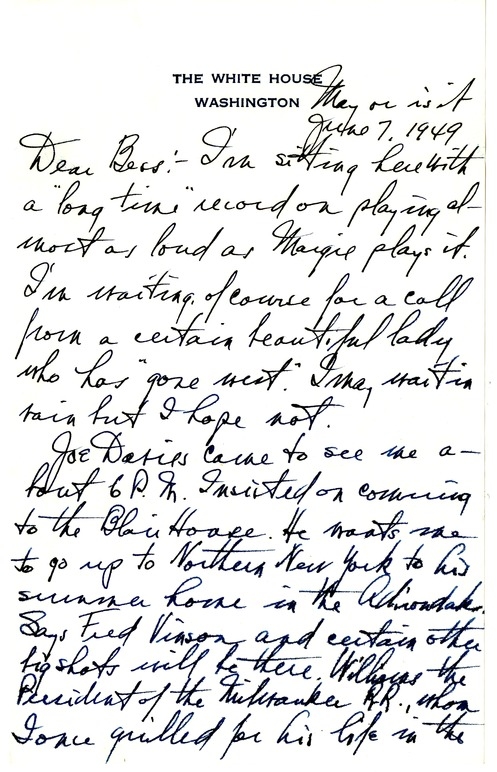 THE WHITE HOUSE
WASHINGTON
May or is it
June 7, 1949
Dear Bess:- I'm sitting here with
a "long time" record on playing al-
most as loud as Margie plays it.
I'm waiting, of course for a call
from a certain beautiful lady
who has "gone west." I may wait in
vain but I hope not.
Joe Davies came to see me a-
bout 6 P.M. Insisted on comming
to the Blair House. He wants me
to go up to Northern New York to his
summer home in the Adirondaks.
Says Fred Vinson and certain other
big shots will be there. Williams the
President of the Milwaukee R.R., whom
I once grilled for his life in the